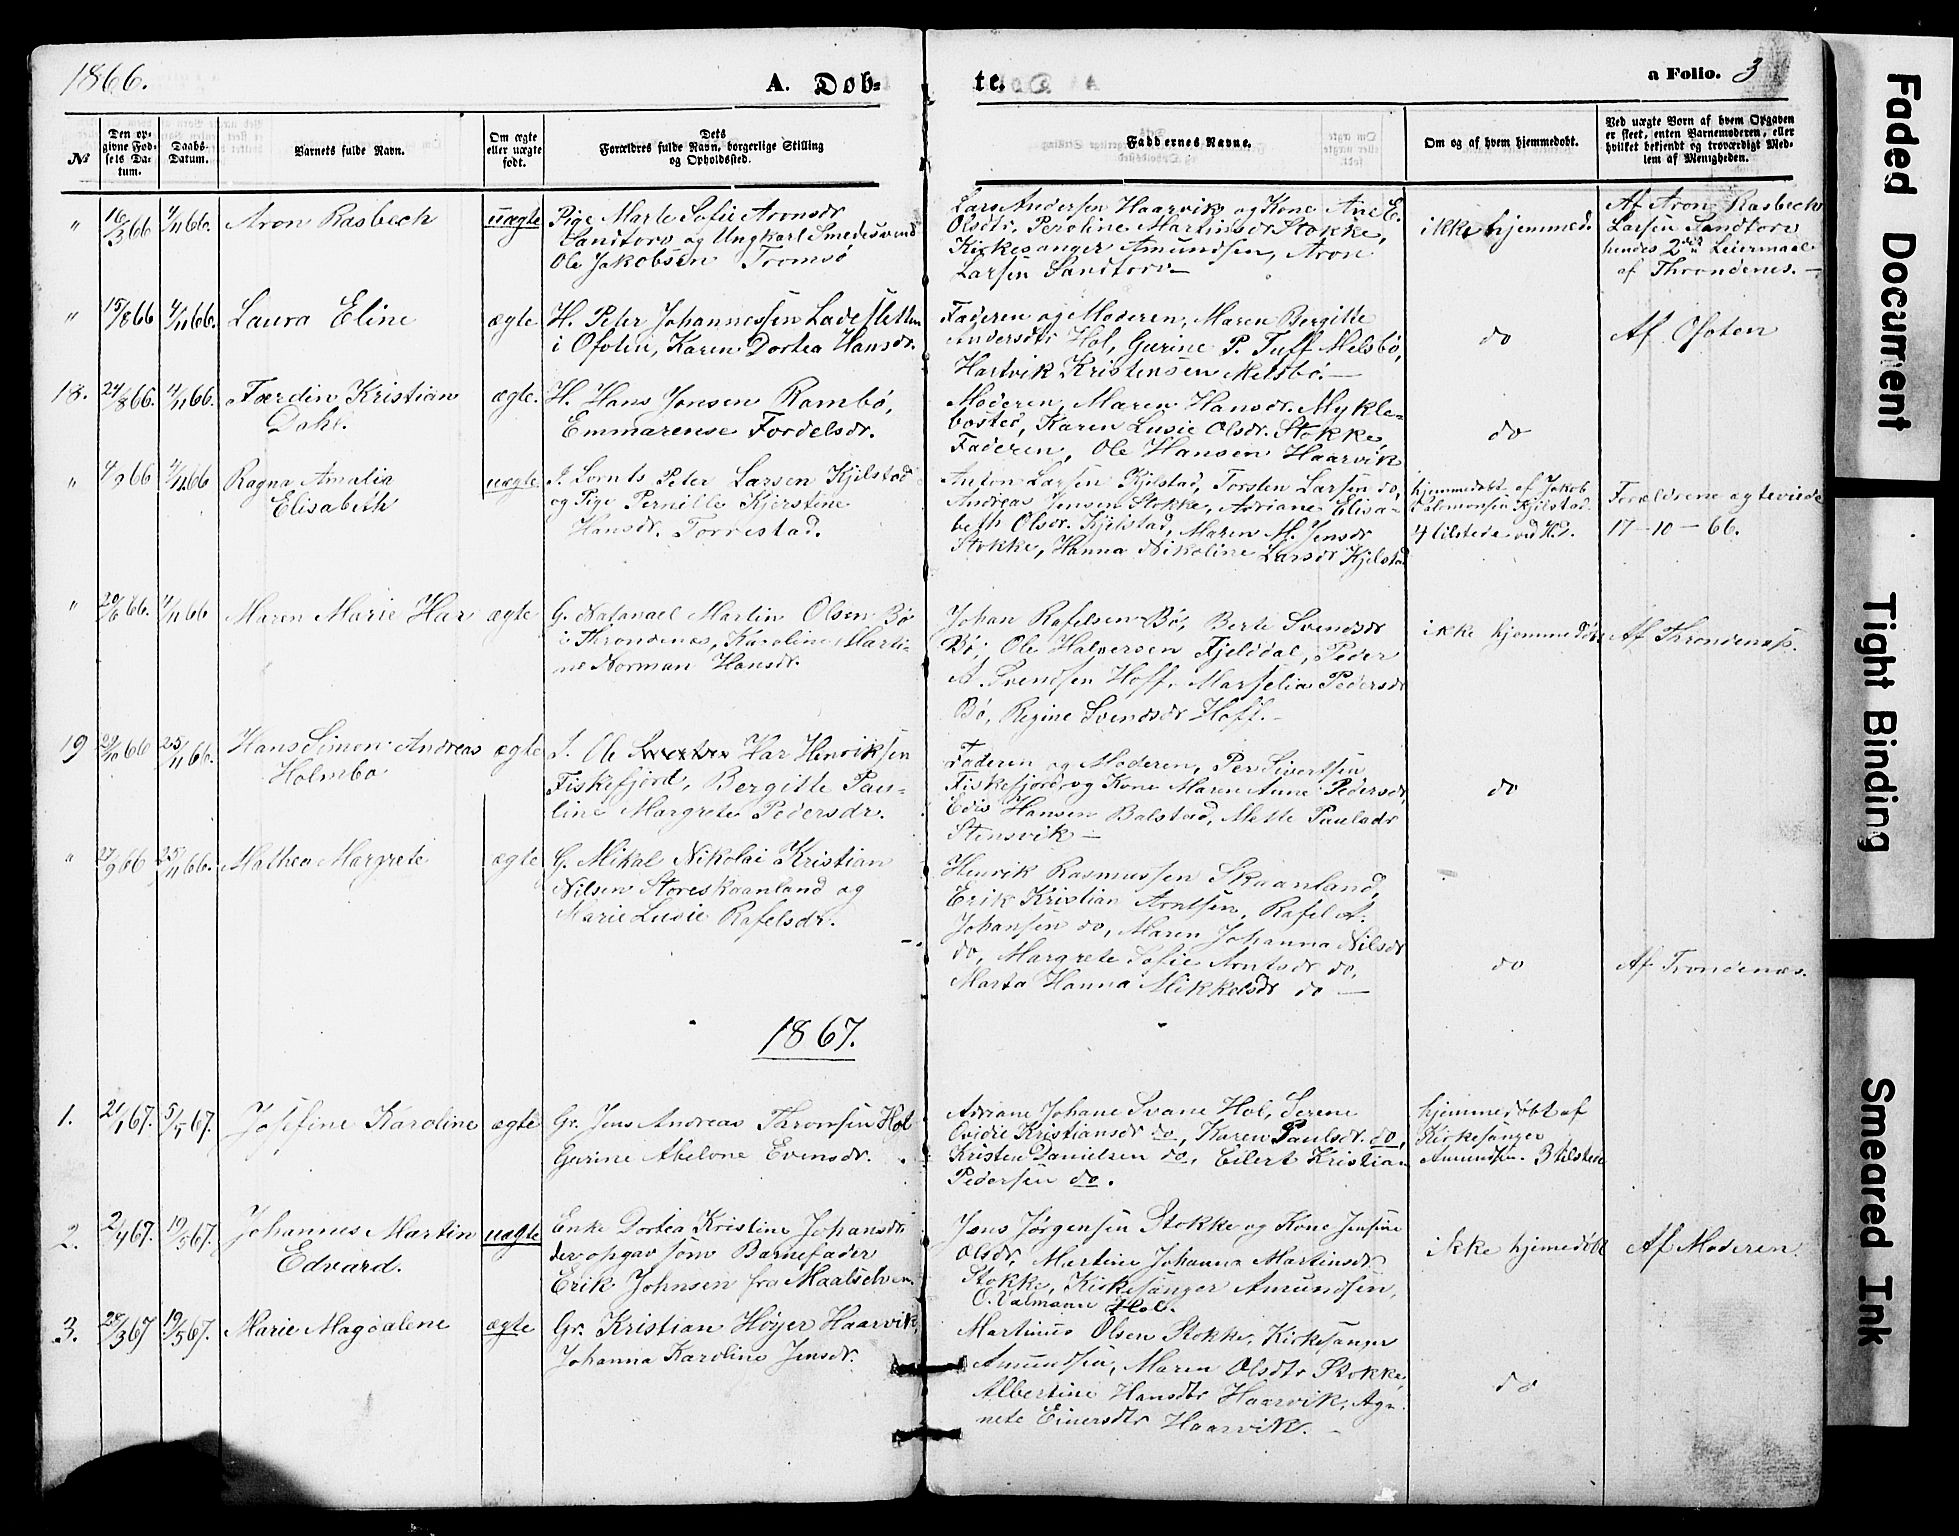 1866.
A. Døb-
te.
a Folio. 3
№
Den op-
givne Fød-
sels Da-
tum.
Daabs-
Datum.
Barnets fulde Navn.
Om ægte
eller uægte
født.
Dets
Forældres fulde Navn, borgerlige Stilling
og Opholdssted.
Faddernes Navne.
Om og af hvem hjemmedøbt.
Ved uægte Børn af hvem Opgaven
er skeet, enten Barnemoderen, eller
hvilket bekjendt og troværdigt Med-
lem af Menigheden.
"
16/3 66
4/11 66.
Aron Rasbech
uægte
Pige Marte Sofie Aronsdr
Sandtorv og Ungkarl Smedesvend
Ole Jakobsen Tromsø
Lars Andersen Haarvik og Kone Ane E.
Olsdtr, Peroline Martinsdr Stokke,
Kirkesanger Amundsen, Aron
Larsen Sandtorv—
ikke hjemmed.
Af Aron Rasbech
Larsen Sandtorv
hendes 2den Leiermaal
af Throndenes.—
"
15/8 66
4/11 66.
Laura Eline
ægte
H. Peter Johannessen Ladesletten
i Ofoten, Karen Dortea Hansdr.
Faderen og Moderen, Maren Bergitte
Andersdtr Hol, Gurine P. Tuff Melsbø,
Hartvik Kristensen Melsbø.—
do
Af Ofoten
18.
24/8 66.
4/11 66.
Færdin Kristian
Dahl.
ægte.
H. Hans Jonsen Rambø,
Emmarense Fordelsdr.
Moderen, Maren Hansdr. Mykle-
bosted, Karen Lusie Olsdr. Stokke,
Faderen, Ole Hansen Haarvik
do
"
4/9 66
4/11 66
Ragna Amalia
Elisabeth
uægte
I. Lornts Peter Larsen Kjilstad
og Pige Pernille Kjerstine
Hansdr. Torrestad.
Anton Larsen Kjilstad, Torsten Larsen do,
Andreas Jensen Stokke, Adriane Elisa-
beth Olsdr. Kjilstad, Maren M. Jensdr
Stokke, Hanna Nikoline Larsdr Kjilstad
hjemmedøbt af Jakob
Salomonsen Kjilstad.
4 tilstede ved H.d.
Forældrene ægteviede
17-10-66.
"
20/6 66.
4/11 66
Maren Marie Har
ægte
G. Natanael Martin Olsen Bø
i Throndenes, Karoline Marti-
ne Norman Hansdr.
Johan Rafelsen Bø, Berte Svendsdr
Bø, Ole Halversen Fjelddal, Peder
A. Svendsen Hoff, Marselia Pedersdr
Bø, Regine Svendsdr Hoff.—
ikke hjemmedøbt
Af Throndenæs.
19
29/10 66
25/11 66.
Hans Simon Andreas
Holmbo
ægte
I. Ole Har Henriksen
Fiskefjord, Bergitte Pau-
line Margrete Pedersdr.
Faderen og Moderen, Per Sivertsen
Fiskefjord og Kone Maren Anne Pedersdr,
Edis Hansen Balstad, Mette Paulsdr
Stensvik—
do
"
27/9 66
25/11 66.
Mathea Margrete
ægte
G. Mikal Nikolai Kristian
Nilsen Storeskaanland og
Marie Lusie Rafelsdr.
Henrik Rasmussen Skaanland,
Erik Kristian Arntsen, Rafel A.
Johansen do, Maren Johanna Nilsdr
do, Margrete Sofie Arntsdr do,
Marta Hanna Mikkelsdr do—
do
Af Trondenæs.
1867.
1.
21/1 67.
5/5 67.
Josefine Karoline
ægte
Gr. Jens Andreas Thronsen Hol
Gurine Abelone Evensdr.
Adriane Johane Svane Hol, Serene
Ovidie Kristiansdr do, Karen Paulsdr. do,
Kristen Danielsen do, Eilert Kristian
Pedersen do.
hjemmedøbt af
Kirkesanger
Amundsen. 3 tilstede
2.
2/4 67.
19/5 67.
Johannes Martin
Edvard.
uægte
Enke Dortea Kristine Johansdr
der opgav som Barnefader
Erik Johnsen fra Maalselven.
Jens Jørgensen Stokke og Kone Jensine
Olsdr, Martine Johanna Martinsdr
Stokke, Kirkesanger Amundsen,
O. Valmann Hol.
ikke hjemedøbt
Af Moderen.
3.
28/3 67
19/5 67.
Marie Magdalene
ægte
Gr. Kristian Høyer Haarvik,
Johanna Karoline Jensdr.
Martinus Olsen Stokke, Kirkesanger
Amundsen, Maren Olsdtr Stokke,
Albertine Hansdtr Haarvik, Agn-
nete Einersdtr Haarvik.—
do
Faded Document
Tight Binding
Smeared Ink